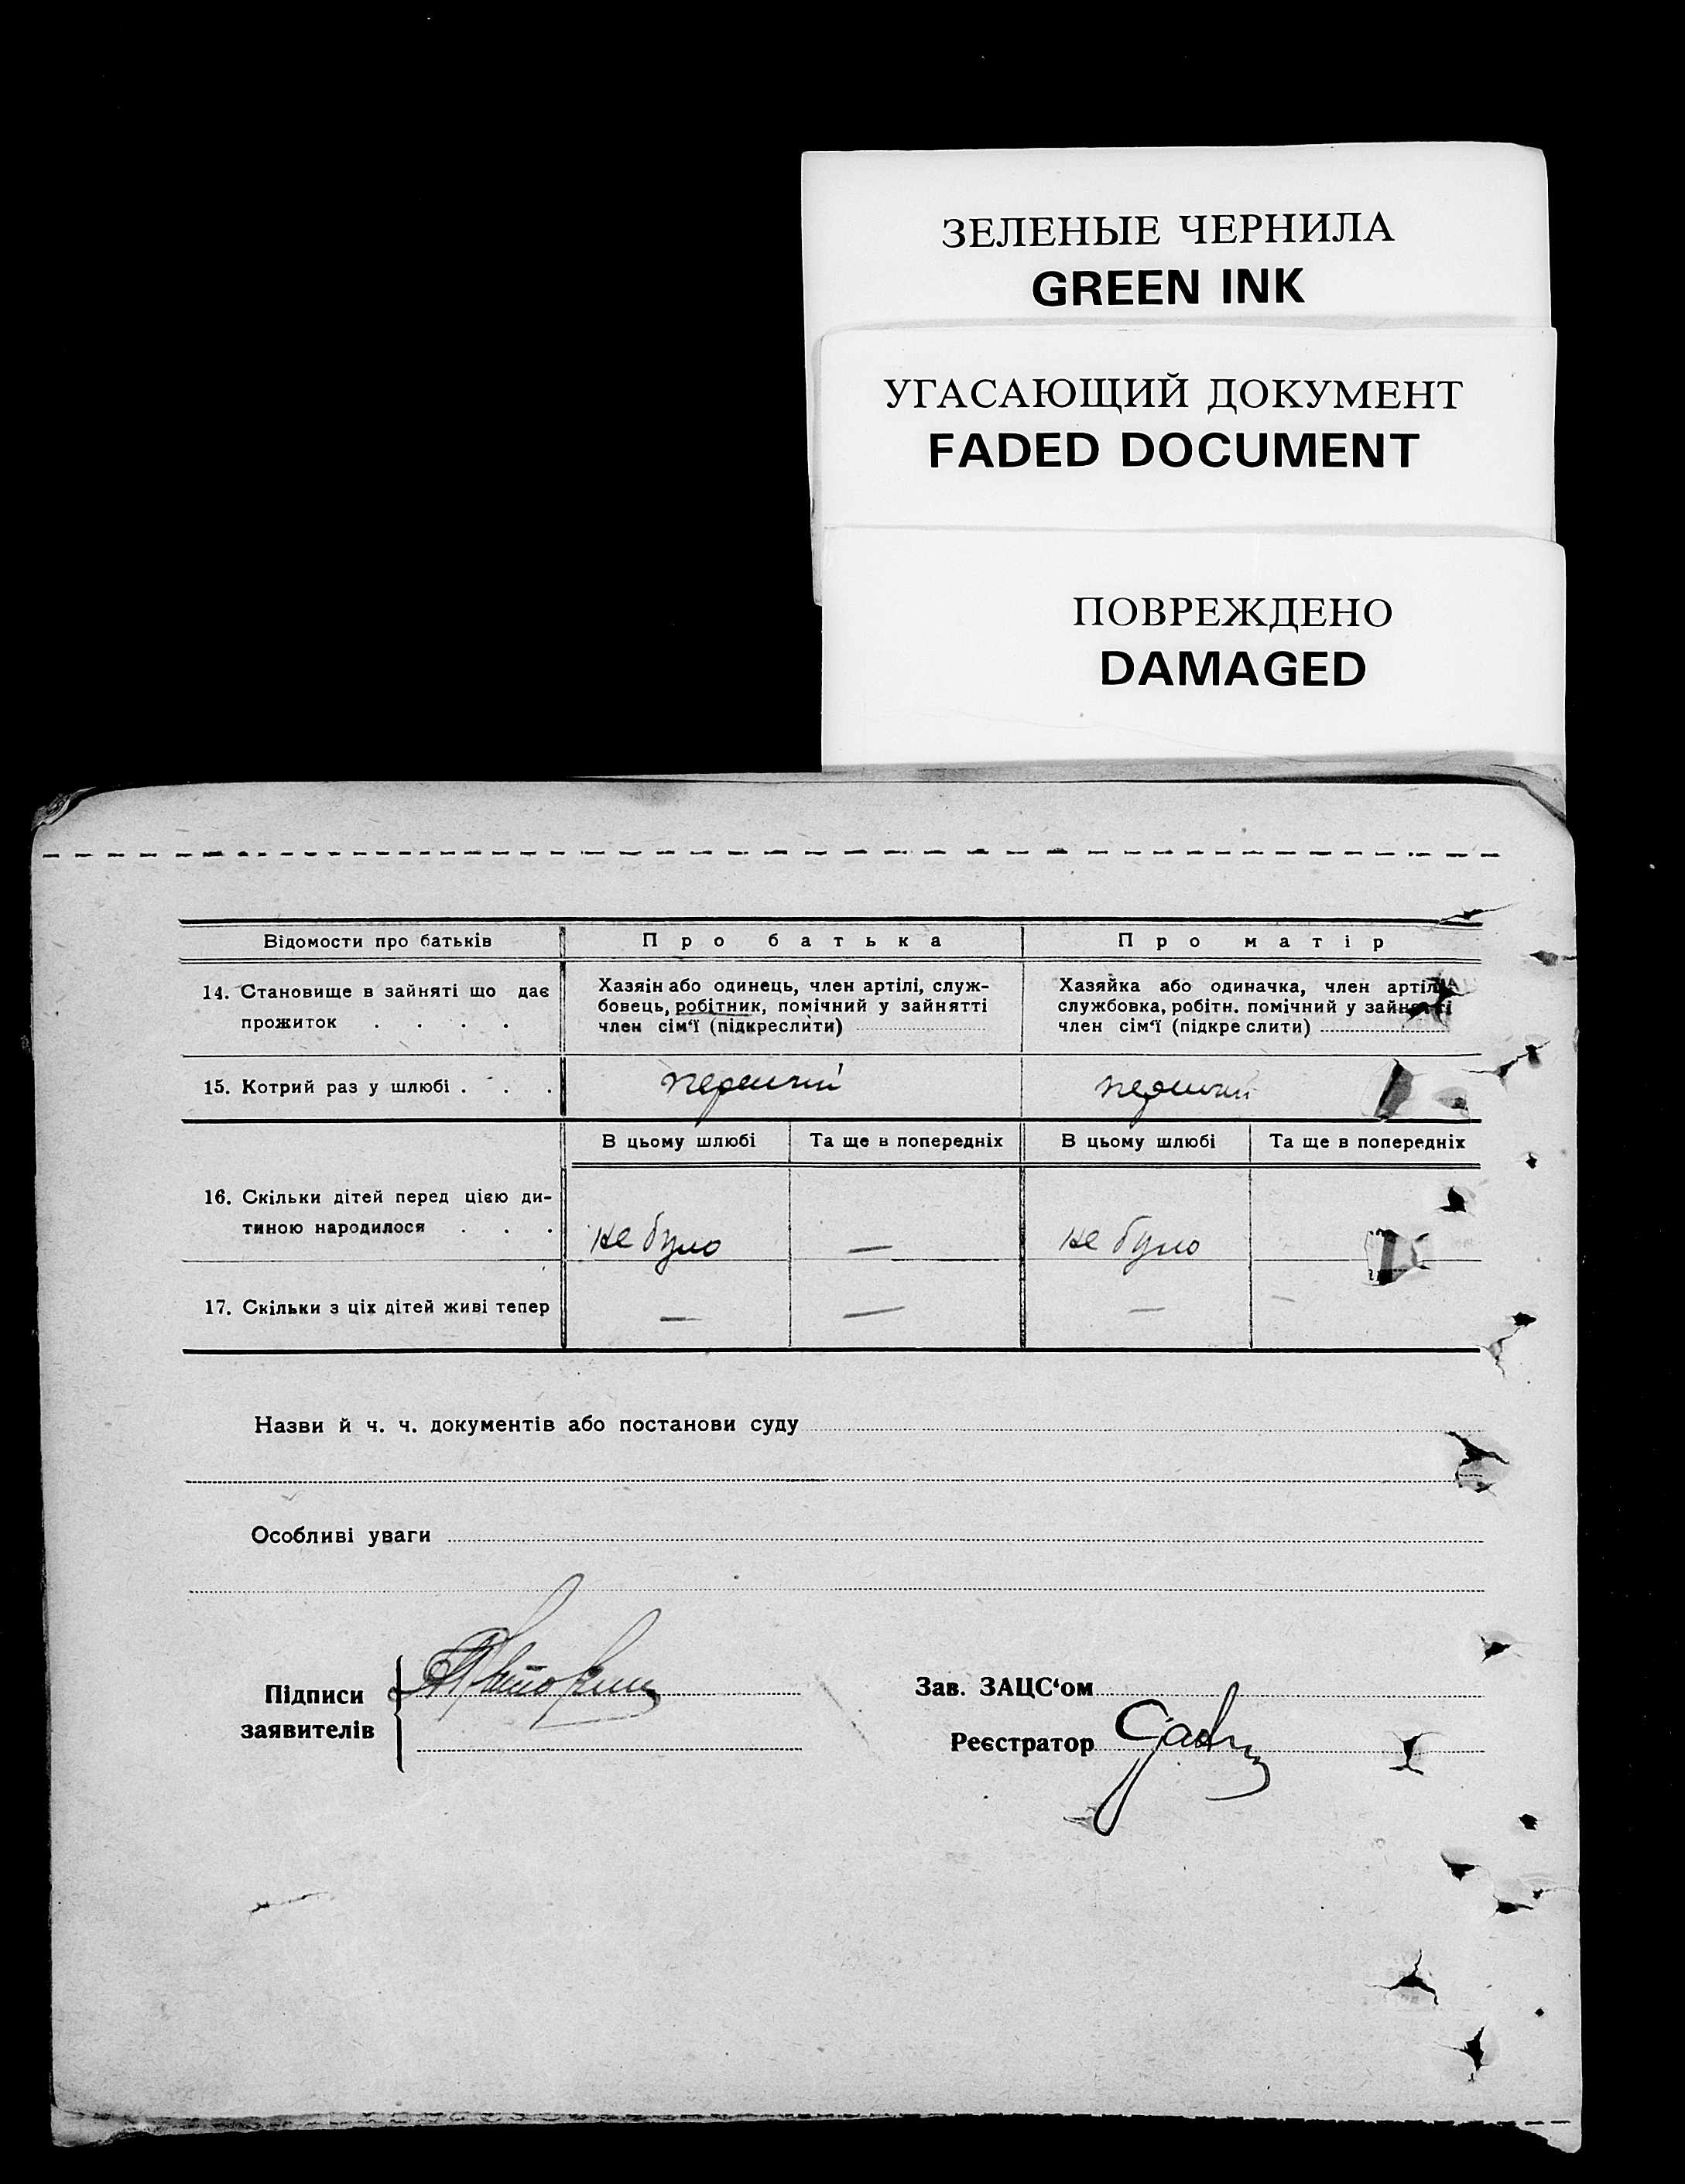 ЗЕЛЕНЫЕ ЧЕРНИЛА
GREEN INK
УГАСАЮЩИЙ ДОКУМЕНТ
FADED DOCUMENT
ПОВРЕЖДЕНО
DAMAGED
Відомости про батьків
Про батька
Про матір
14. Становище в зайняті що дає
прожиток . . . .
Хазяін або одинець, член артілі, служ-
бовець, робітник, помічний у зайнятті
член сім'ї (підкреслити)
Хазяйка або одиначка, член артілі
службовка, робітн. помічний у зайнятті
член сім'ї (підкре слити)
15. Котрий раз у шлюбі . . .
перший
перший
В цьому шлюбі
Та ще в попередніх
В цьому шлюбі
Та ще в попередніх
16. Скільки дітей перед цією ди-
тиною народилося . . .
не було
—
не було
17. Скільки з ціх дітей живі тепер
—
—
—
—
Назви й ч. ч. документів або постанови суду
Особливі уваги
Підписи
заявителів
Зав. ЗАЦС'ом
Реєстратор